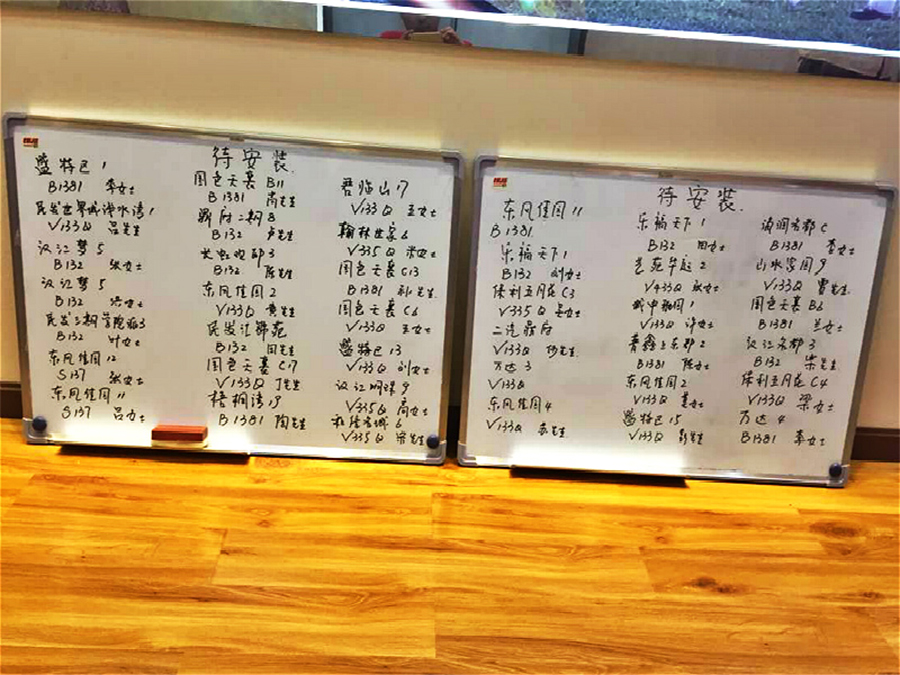 待安装
盛特区1
B1381 李女士
民发世界城浮水湾1
V133Q 吕先生
汉江梦5
B132 张女士
汉江梦5
B132 女士
B132 叶女士
东风佳园12
S137 张女士
东风佳园11
S137 吕女士
国色天襄B11
B1381 尚先生
B132 卢先生
B132 陈先生
东风佳园2
V133Q 黄先生
民发江舜苑
B132 周先生
国色天襄C17
V133Q 丁先生
梧桐湾13
B1381 陶先生
君临山17
V133Q 王女士
翰林世家6
V335Q 女士
国色天襄C13
B1381 先生
国色天襄C6
V133Q 王女士
盛特区13
V133Q 刘女士
汉江明珠9
V335Q 高女士
V335Q 先生
待安装
东风佳园11
B1381
乐福天下1
B132 刘女士
保利五月花C3
V335Q 女士
二汽
V133Q 先生
万达3
V133Q
东风佳园4
V133Q 先生
乐福天下1
B132 田女士
V433Q 张女士
V133Q 许女士
2
B1381 陈女士
东风佳园2
V133Q 女士
盛特区15
V133Q 彭先生
B1381 李女士
山水家园9
V133Q 曹先生
国色天襄B6
B1381 兰女士
3
B132 宋先生
保利五月花C4
V133Q 梁女士
万达4
B1381 李女士